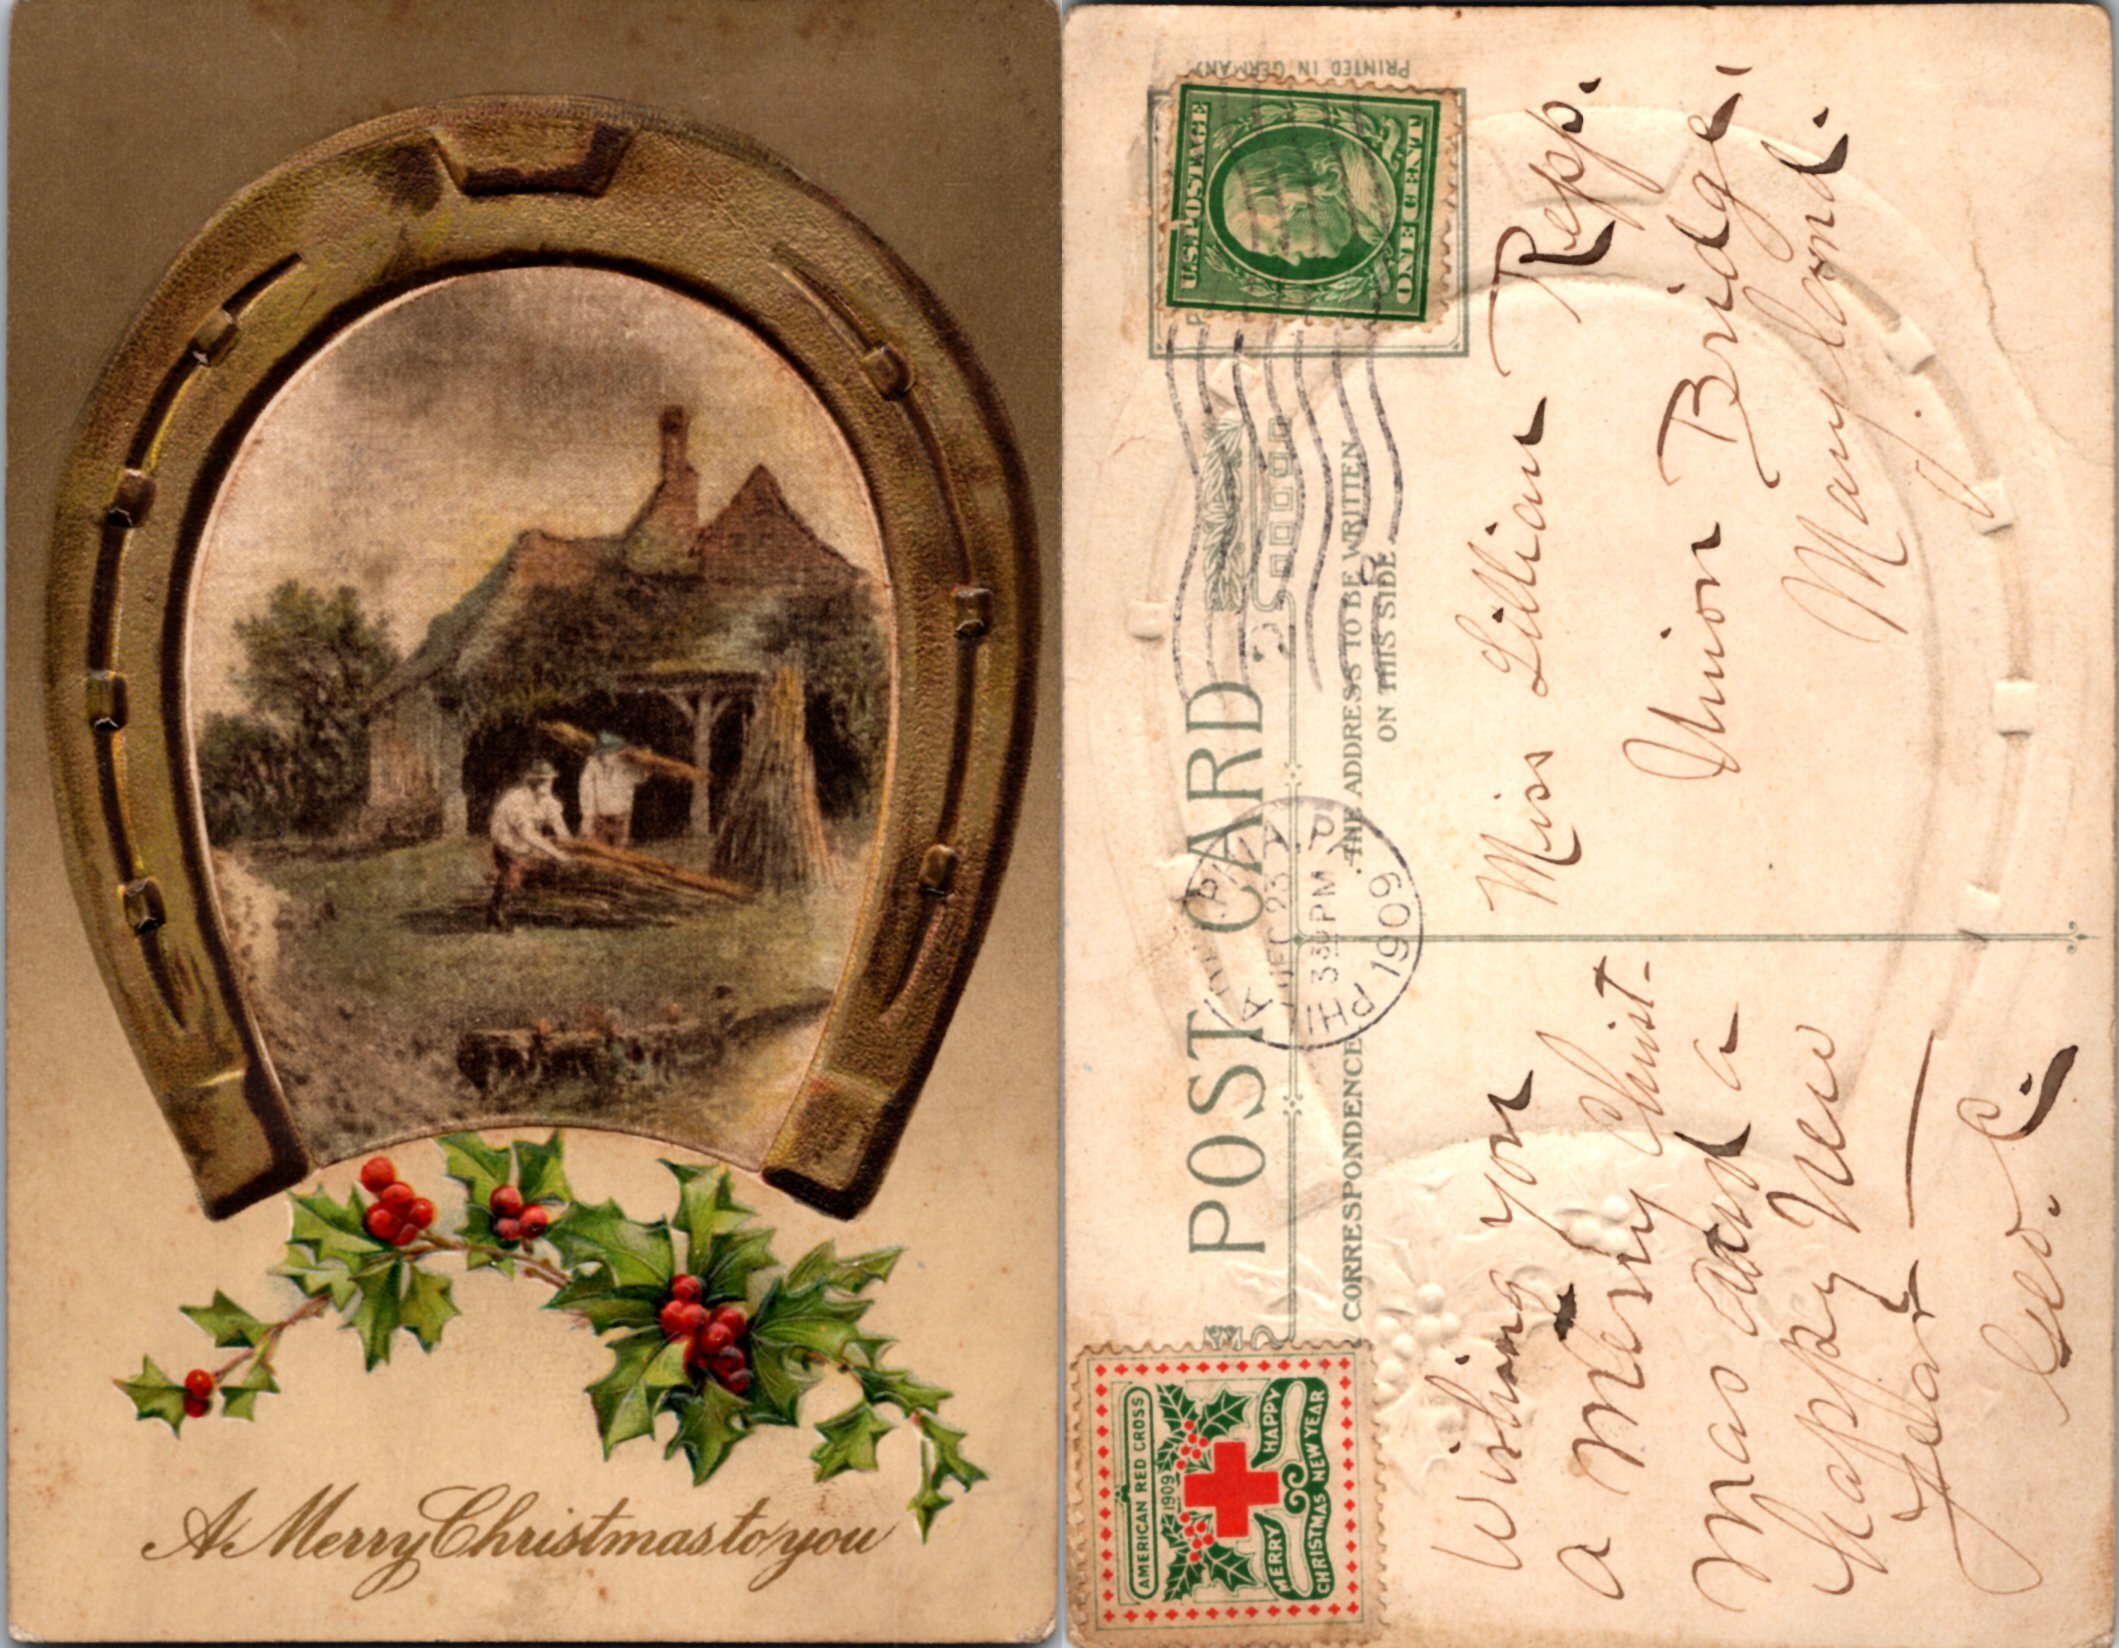 A Merry Christmas to you
PRINTED IN GERMANY
U.S. POSTAGE
ONE CENT
POST CARD
CORRESPONDENCE
THE ADDRESS TO BE WRITTEN
ON THIS SIDE
DEC 23
3 30 PM
1909
AMERICAN RED CROSS
1909
MERRY
HAPPY
CHRISTMAS NEW YEAR
Wishing you
a Merry Christ-
mas and a
Happy New
Year —
Geo. C.
Miss Lillian Repp.
Union Bridge
Maryland.